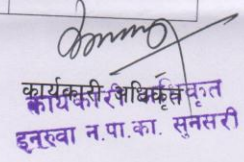 कार्यकारी अधिकृत
कार्यकारी अधिकृत
इनरुवा न.पा.का. सुनसरी